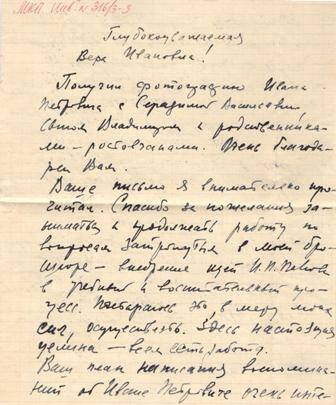 МКП Инв. № 316/3-3
Глубокоуважаемая
Вера Ивановна!
Получил фотографию Ивана
Петровича с Серафимой Васильевн
сыном Владимиром и родственника-
ми – ростовчанами. Очень благода-
рен Вам.
Ваше письмо я внимательно про-
читал. Спасибо за пожелания за-
ниматься и продолжать работу по
вопросам затронутым в моей бро-
шюре – внедрение идей И.П. Павлова
в учебный и воспитательный про-
цесс. Постараюсь это, в меру моих
сил, осуществить. Здесь настоящая
целина – всем есть работа.
Ваш план написания воспомина-
ний об Иване Петровиче очень инте